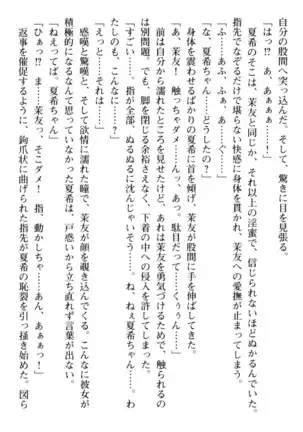 自分の股間へ突っ込んだ。そして、驚きに目を見張る。
　夏希のそこは、茉友と同じか、それ以上の淫蜜で、信じられないほどぬかるんでいた。
指先でなぞるだけで堪らない快感に身体を貫かれ、茉友への愛撫が止まってしまう。
「ふあっ、あふ、ふぁ、あ……ぐ……」
「夏希ちゃん……どうしたの？」
「あ、茉友！　触っちゃダメ……んっ。駄目だって……くぅぅん……」
　身体を震わせるばかりの夏希に首を傾げ、茉友が股間に手を伸ばしてきた。
前は自分から濡れたところを見せたけど、あれは茉友を勇気づけるためで、触られるの
は別問題。でも、脚を閉じる余裕さえなく、下着の中への侵入を許してしまった。
「すごい……。指が全部、ぬるぬるに沈んじゃいそう……。ね、ねぇ夏希ちゃん……。わ
たしのも、こんなに……？」
　感嘆と驚嘆と、そして欲情に濡れた瞳で、茉友が顔を覗き込んでくる。こんなに彼女が
積極的になるなんて思っていなかった夏希は、戸惑いから立ち直れず言葉が出ない。
「ねぇってば、夏希ちゃん」
「ひぁっ!?　ま……茉友っ、そこダメ！　指、動かしちゃ……あん、あぁぁっ！」
　返事を催促するように、鉤爪状に曲げられた指先が夏希の恥裂を引っ掻き始めた。図ら